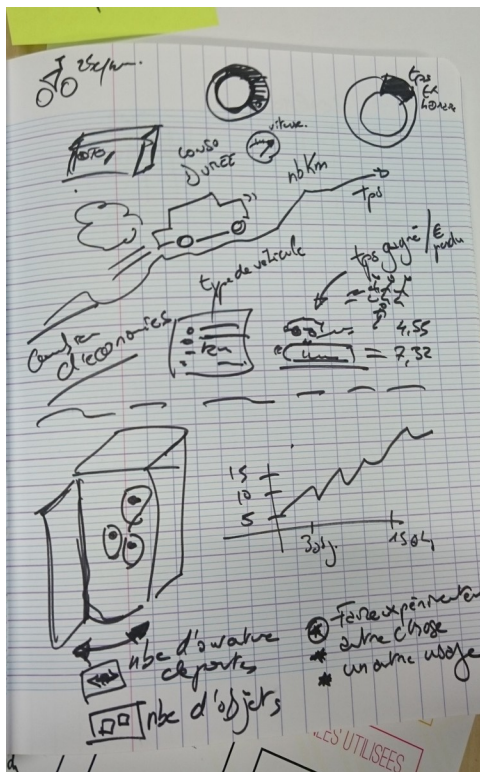 tps
vitesse.
CONSO
DUREE
nb Km
tps
type de véhicule
tps gagné / €
perdu
Combien
d'économies
= 4,55
= 7,32
15
10
5
30bj.
150bj
nbe d'ouverture
de portes
nbe d'objets
Faire expérimenter
autre chose
un autre usage
LES UTILISÉES